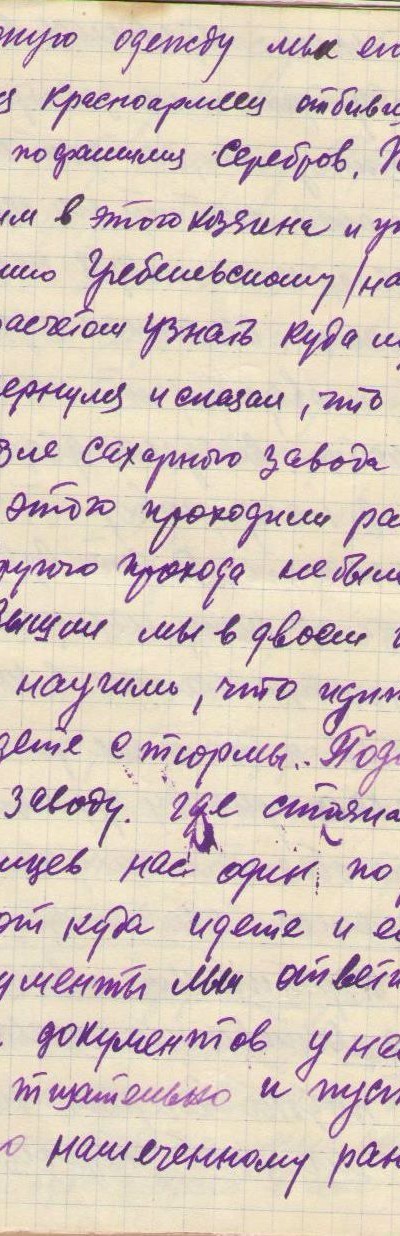 одежду мы
красноармеец отбивши
по фамилия Серебров.
им в этого хозяина и
Гребеневскому (на
расчетом узнать куда и
вернулся и сказал, что
возле сахарного завода
этого проходили ра
другого прохода небыл
Вышли мы в двоем
научили, что идит
идете с тюрмы. Подх
заводу. где стояна
мцев нас один по
от куда идете и е
кументы мы ответи
документов у на
тщательно и пуст
о намеченному ран